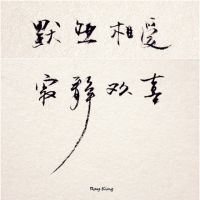 默然相爱
寂静欢喜
Ray King